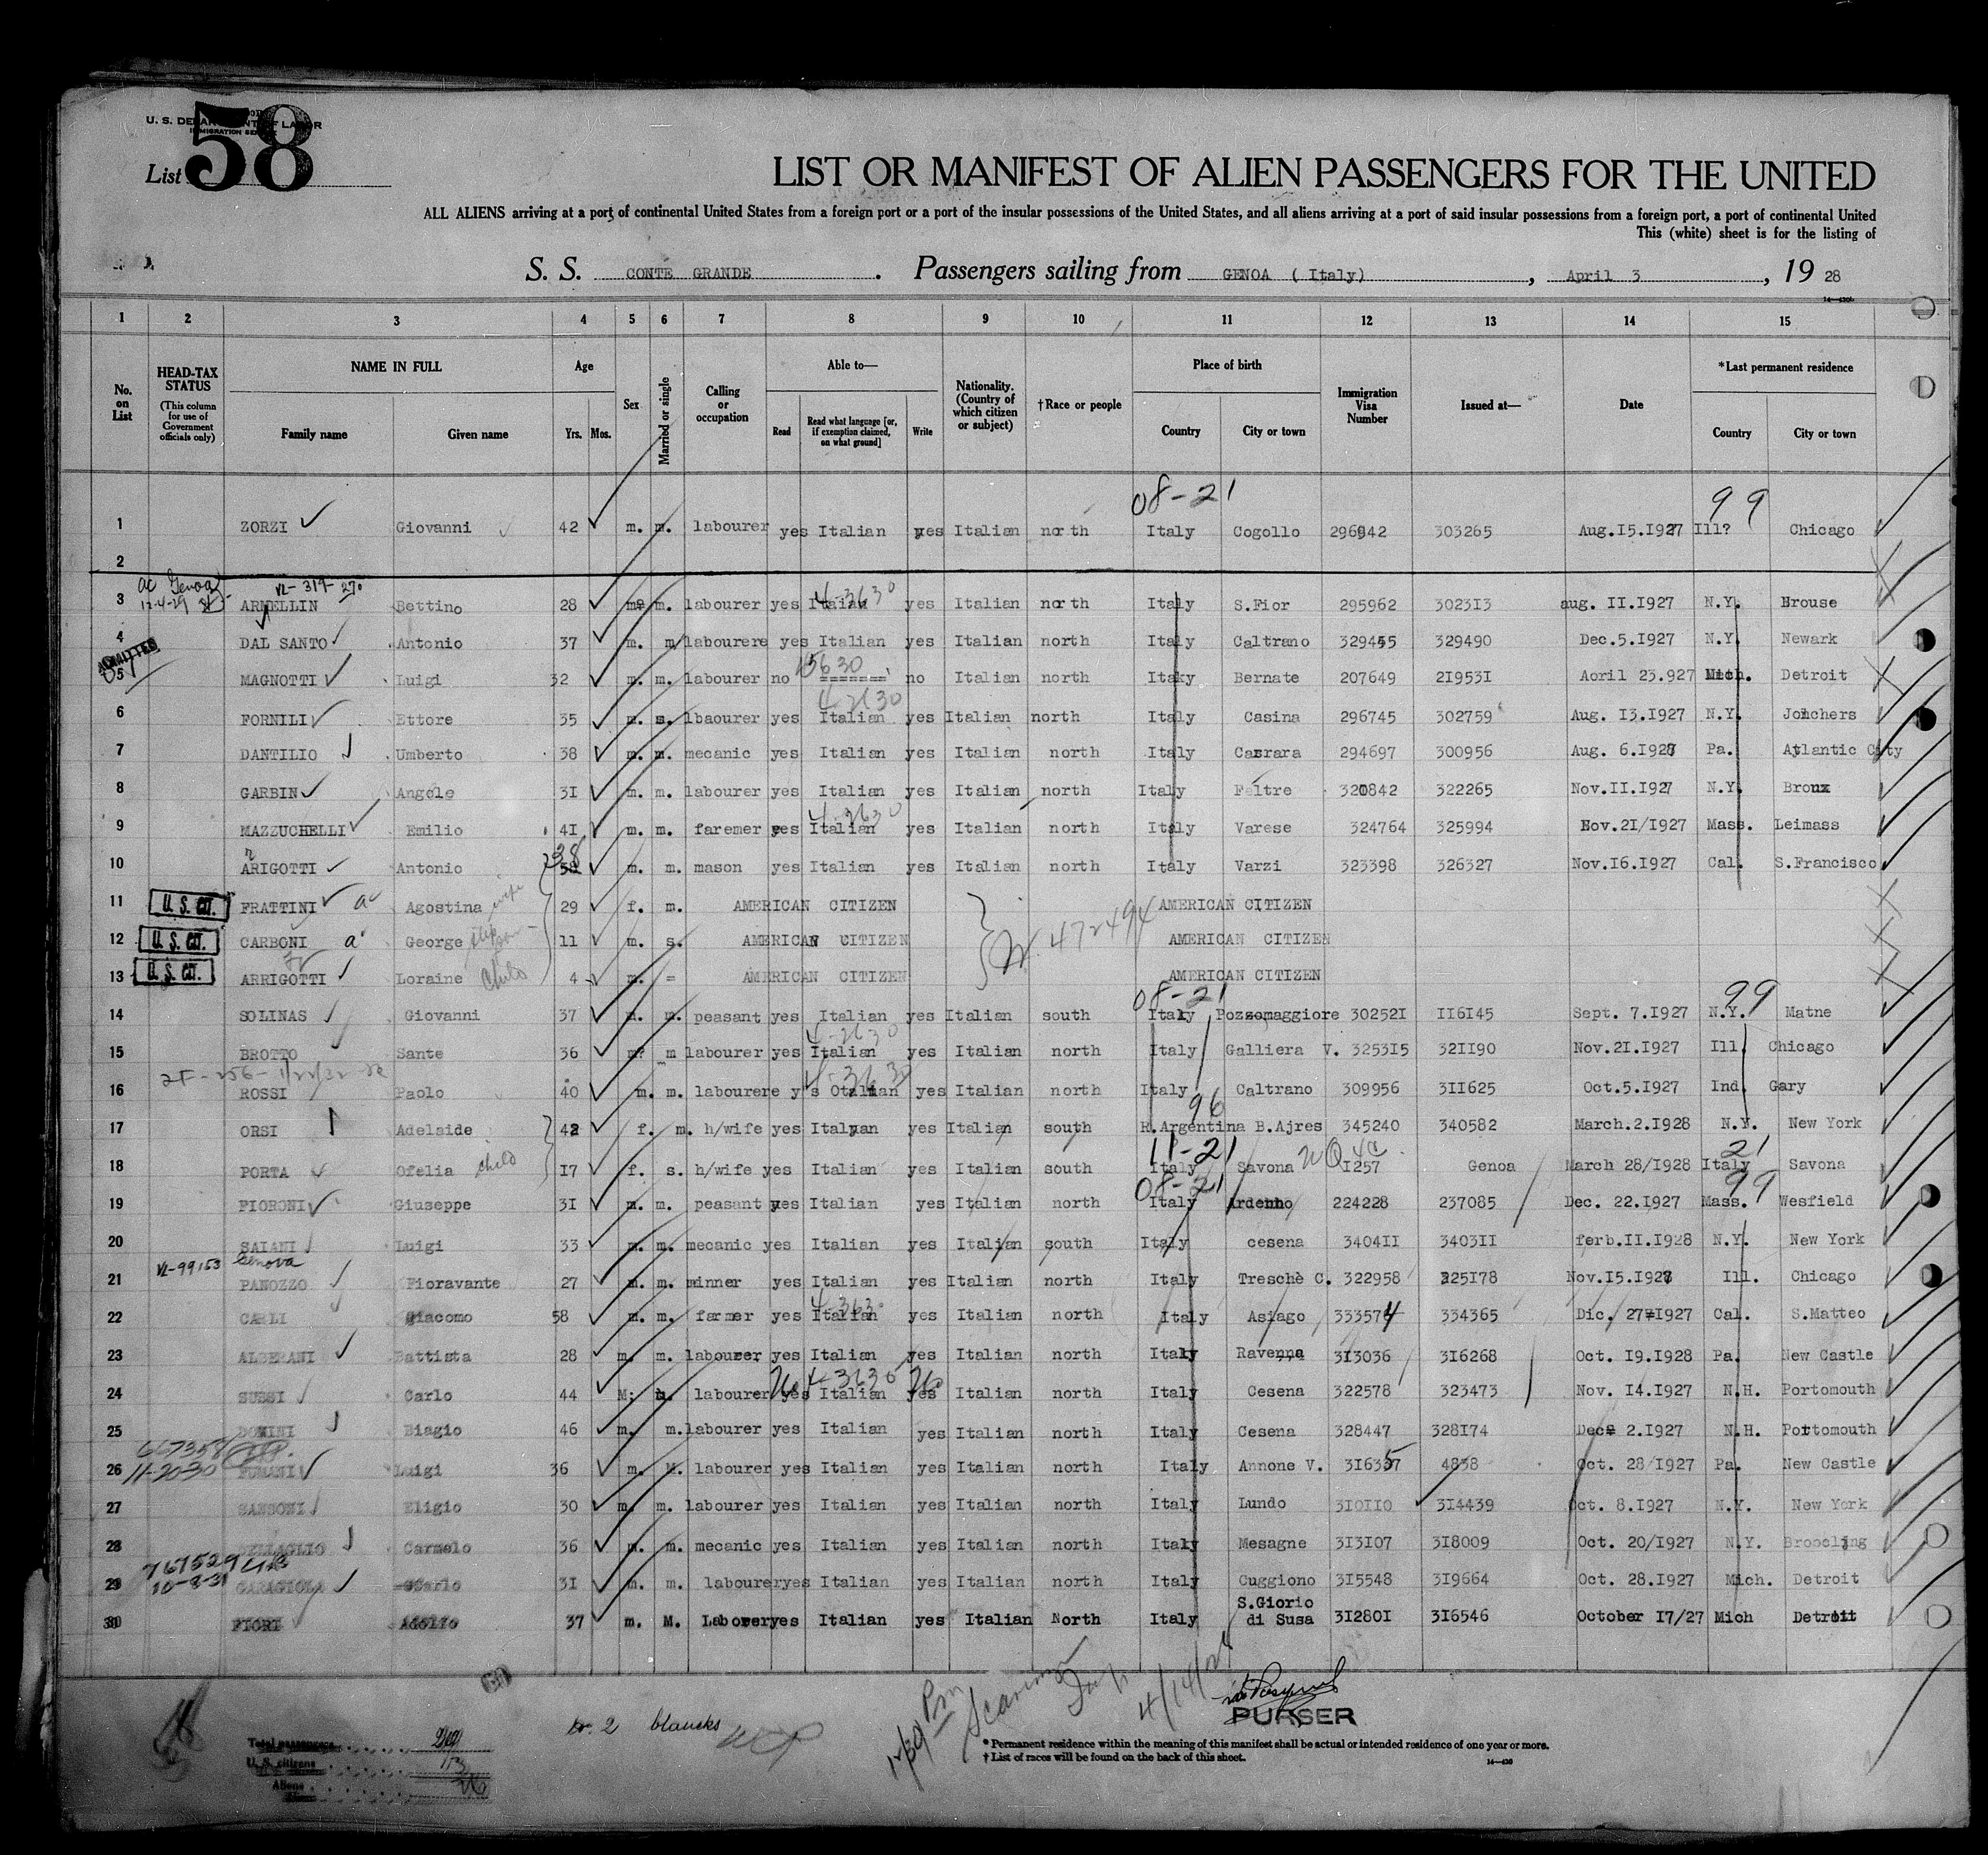 U. S. DEPARTMENT OF LABOR
IMMIGRATION SERVICE
List 58
LIST OR MANIFEST OF ALIEN PASSENGERS FOR THE UNITED
ALL ALIENS arriving at a port of continental United States from a foreign port or a port of the insular possessions of the United States, and all aliens arriving at a port of said insular possessions from a foreign port, a port of continental United
This (white) sheet is for the listing of
S. S. CONTE GRANDE . Passengers sailing from GENOA (Italy) , April 3 , 19 28
14—430b
1 2 3 4 5 6 7 8 9 10 11 12 13 14 15
No. on List HEAD-TAX STATUS (This column for use of Government officials only) NAME IN FULL Family name Given name Age Yrs. Mos. Sex Married or single Calling or occupation Able to— Read Read what language [or, if exemption claimed, on what ground] Write Nationality. (Country of which citizen or subject) †Race or people Place of birth Country City or town Immigration Visa Number Issued at— Date *Last permanent residence Country City or town
08-21 99
1 ZORZI Giovanni 42 m. m. labourer yes Italian yes Italian north Italy Cogollo 296942 303265 Aug.15.1927 Ill? Chicago
2
ac Genoa VL-319-270
12-4-29
3 ARMELLIN Bettino 28 m. m. labourer yes Italian 4-3630 yes Italian north Italy S.Fior 295962 302313 aug. II.1927 N.Y. Brouse
4 DAL SANTO Antonio 37 m. m. labourere yes Italian yes Italian north Italy Caltrano 329455 329490 Dec.5.1927 N.Y. Newark
ADMITTED
5 MAGNOTTI Luigi 32 m. m. labourer no ======= no Italian north Itaky Bernate 207649 219531 Aoril 23.927 Mich. Detroit
6 FORNILI Ettore 35 m. s. lbaourer yes Italian yes Italian north Italy Casina 296745 302759 Aug. 13.1927 N.Y. Jonchers
7 DANTILIO Umberto 38 m. m. mecanic yes Italian yes Italian north Italy Carrara 294697 300956 Aug. 6.1927 Pa. Atlantic City
8 GARBIN Angelo 31 m. m. labourer yes Italian yes Italian north Italy Feltre 320842 322265 Nov.II.1927 N.Y. Broux
9 MAZZUCHELLI Emilio 41 m. m. faremer yes Italian 4-3630 yes Italian north Italy Varese 324764 325994 Nov.21/1927 Mass. Leimass
10 ARIGOTTI Antonio 38 m. m. mason yes Italian yes Italian north Italy Varzi 323398 326327 Nov.16.1927 Cal. S.Francisco
11 U.S. CIT. FRATTINI Agostina wife 29 f. m. AMERICAN CITIZEN AMERICAN CITIZEN
12 U.S. CIT. CARBONI George step son 11 m. s. AMERICAN CITIZEN 472494 AMERICAN CITIZEN
13 U.S. CIT. ARRIGOTTI Loraine child 4 m. = AMERICAN CITIZEN AMERICAN CITIZEN
08-21 99
14 SOLINAS Giovanni 37 m. m. peasant yes Italian yes Italian south Italy Pozzomaggiore 302521 116145 Sept. 7.1927 N.Y. Matne
15 BROTTO Sante 36 m? m labourer yes Italian 4-3630 yes Italian north Italy Galliera V. 325315 321190 Nov.21.1927 Ill. Chicago
16 ROSSI Paolo 40 m. m. labourere y's Otalian yes Italian north Italy Caltrano 309956 311625 Oct.5.1927 Ind. Gary
96
17 ORSI Adelaide 42 f. m. h/wife yes Italyan yes Italian south R.Argentina B.Ajres 345240 340582 March.2.1928 N.Y. New York
11-21 21
18 PORTA Ofelia child 17 f. s. h/wife yes Italian yes Italian south Italy Savona 1257 Genoa March 28/1928 Italy Savona
08-21 99
19 FIORONI Giuseppe 31 m. m. peasant yes Italian yes Italian north Italy Ardenno 224228 237085 Dec. 22.1927 Mass. Wesfield
20 SAIANI Luigi 33 m. m. mecanic yes Italian yes Italian south Italy cesena 340411 340311 ferb.II.1928 N.Y. New York
VL-99153 Genova
21 PANOZZO Fioravante 27 m. m. minner yes Italian yes Italian north Italy Treschè C. 322958 225178 Nov.15.1927 Ill. Chicago
22 CARLI Giacomo 58 m. m. farmer yes Italian yes Italian north Italy Asiago 333574 334365 Dic. 27.1927 Cal. S.Matteo
23 ALBERANI Battista 28 m. m. labourer yes Italian yes Italian north Italy Ravenna 313036 316268 Oct. 19.1928 Pa. New Castle
24 SUSSI Carlo 44 M. m. labourer yes No Italian 4-3630 yes No Italian north Italy Cesena 322578 323473 Nov. 14.1927 N.H. Portomouth
25 DOMINI Biagio 46 m. m. labourer yes Italian yes Italian north Italy Cesena 328447 328174 Dec. 2.1927 N.H. Portomouth
667358
11-20-30
26 FUMANI Luigi 36 m. M. labourer yes Italian yes Italian north Italy Annone V. 316357 4838 Oct. 28/1927 Pa. New Castle
27 SANSONI Eligio 30 m. m. labourer yes Italian yes Italian north Italy Lundo 310110 314439 Oct. 8.1927 N.Y. New York
28 DELLAGLIO Carmelo 36 m. m. mecanic yes Italian yes Italian north Italy Mesagne 313107 318009 Oct. 20/1927 N.Y. Broocljng
767529
10-8-31
29 GARAGIOLA Carlo 31 m. m. labourer yes Italian yes Italian north Italy Cuggiono 315548 319664 Oct. 28.1927 Mich. Detroit
30 FIORI Adolfo 37 m. M. Laborer yes Italian yes Italian North Italy S.Giorio di Susa 312801 316546 October 17/27 Mich Detroit
2 blancks
4/14/28
PURSER
Total passengers
U. S. citizens
Aliens
* Permanent residence within the meaning of this manifest shall be actual or intended residence of one year or more.
† List of races will be found on the back of this sheet.
14—430